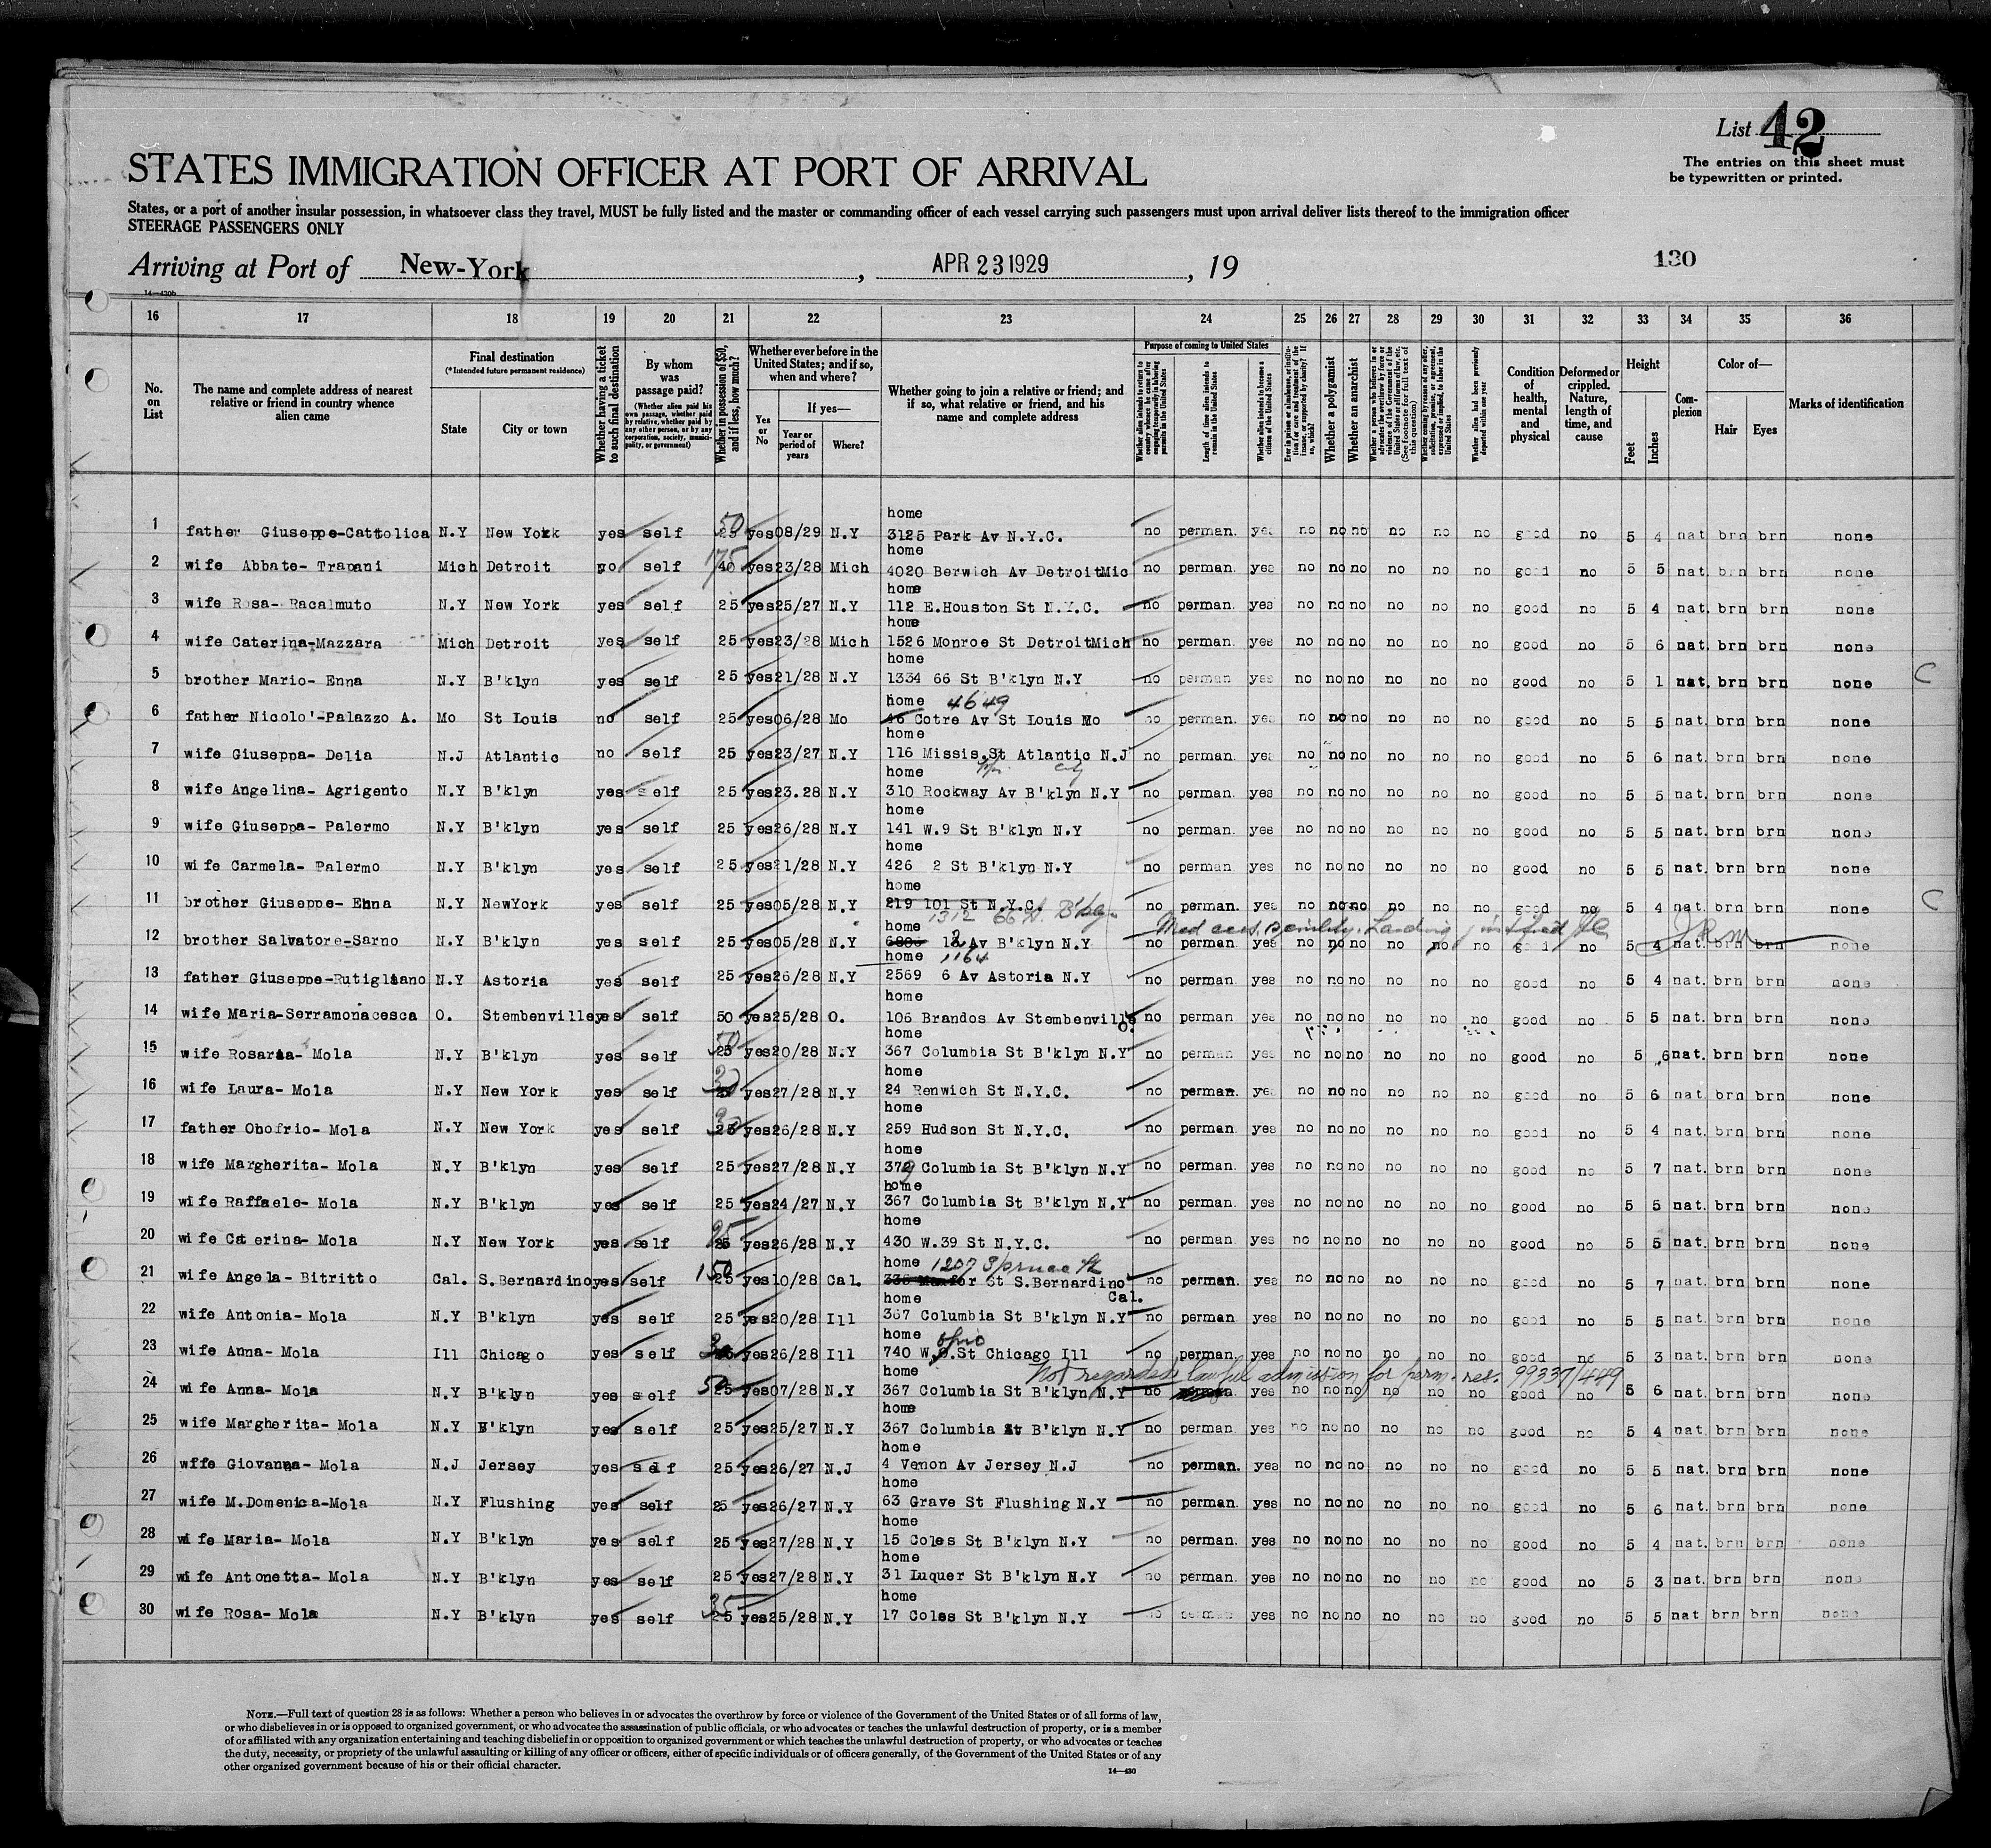 List 42
The entries on this sheet must
be typewritten or printed.
STATES IMMIGRATION OFFICER AT PORT OF ARRIVAL
States, or a port of another insular possession, in whatsoever class they travel, MUST be fully listed and the master or commanding officer of each vessel carrying such passengers must upon arrival deliver lists thereof to the immigration officer
STEERAGE PASSENGERS ONLY
Arriving at Port of New-York, APR 23 1929, 19
130
14—430b
16 17 18 19 20 21 22 23 24 25 26 27 28 29 30 31 32 33 34 35 36
No. on List
The name and complete address of nearest relative or friend in country whence alien came
Final destination
(*Intended future permanent residence)
State
City or town
Whether having a ticket to such final destination
By whom was passage paid?
(Whether alien paid his own passage, whether paid by relative, whether paid by any other person, or by any corporation, society, municipality, or government)
Whether in possession of $50, and if less, how much?
Whether ever before in the United States; and if so, when and where?
Yes or No
If yes—
Year or period of years
Where?
Whether going to join a relative or friend; and if so, what relative or friend, and his name and complete address
Purpose of coming to United States
Length of time alien intends to remain in the United States
Whether alien intends to become a citizen of the United States
Whether a polygamist
Whether an anarchist
Whether alien had been previously deported within one year
Condition of health, mental and physical
Deformed or crippled. Nature, length of time, and cause
Height
Feet
Inches
Complexion
Color of—
Hair
Eyes
Marks of identification
home
1 father Giuseppe-Cattolica N.Y New York yes self 50 25 yes 08/29 N.Y 3125 Park Av N.Y.C. no perman. yes no no no no no no good no 5 4 nat brn brn none
home
2 wife Abbate- Trapani Mich Detroit no self 175 40 yes 23/28 Mich 4020 Berwich Av DetroitMic no perman. yes no no no no no no good no 5 5 nat. brn brn none
home
3 wife Rosa- Racalmuto N.Y New York yes self 25 yes 25/27 N.Y 112 E.Houston St N.Y.C. no perman. yes no no no no no no good no 5 4 nat. brn brn none
home
4 wife Caterina-Mazzara Mich Detroit yes self 25 yes 23/28 Mich 1526 Monroe St DetroitMich no perman. yes no no no no no no good no 5 6 nat. brn brn none
home
5 brother Mario- Enna N.Y B'klyn yes self 25 yes 21/28 N.Y 1334 66 St B'klyn N.Y no perman yes no no no no no no good no 5 1 nat. brn brn none C
home 4649
6 father Nicolo'-Palazzo A. Mo St Louis no self 25 yes 06/28 Mo 46 Cotre Av St Louis Mo no perman. yes no no no no no no good no 5 5 nat. brn brn none
home
7 wife Giuseppa- Delia N.J Atlantic no self 25 yes 23/27 N.Y 116 Missis.St Atlantic N.J no perman. yes no no no no no no good no 5 6 nat. brn brn none
home City
8 wife Angelina- Agrigento N.Y B'klyn yes self 25 yes 23.28 N.Y 310 Rockway Av B'klyn N.Y no perman. yes no no no no no no good no 5 5 nat. brn brn none
home
9 wife Giuseppa- Palermo N.Y B'klyn yes self 25 yes 26/28 N.Y 141 W.9 St B'klyn N.Y no perman. yes no no no no no no good no 5 5 nat. brn brn none
home
10 wife Carmela- Palermo N.Y B'klyn yes self 25 yes 21/28 N.Y 426 2 St B'klyn N.Y no perman yes no no no no no no good no 5 5 nat. brn brn none
home
11 brother Giuseppe- Enna N.Y NewYork yes self 25 yes 05/28 N.Y 219 101 St N.Y.C. no perman. yes no no no no no no good no 5 4 nat. brn brn none C
1312 66 St. B'klyn
home Med cert, senility. Landing justified
12 brother Salvatore-Sarno N.Y B'klyn yes self 25 yes 05/28 N.Y 6806 12 Av B'klyn N.Y no perman yes no no no no no no good no 5 4 nat. brn brn none
home 1164
13 father Giuseppe-Rutigliano N.Y Astoria yes self 25 yes 26/28 N.Y 2569 6 Av Astoria N.Y no perman yes no no no no no no good no 5 4 nat. brn brn none
home
14 wife Maria-Serramonacesca O. Stembenville yes self 50 yes 25/28 O. 106 Brandos Av Stembenville O. no perman yes no no no no no no good no 5 5 nat. brn brn none
home
15 wife Rosaria- Mola N.Y B'klyn yes self 50 25 yes 20/28 N.Y 367 Columbia St B'klyn N.Y no perman yes no no no no no no good no 5 6 nat. brn brn none
home
16 wife Laura- Mola N.Y New York yes self 30 yes 27/28 N.Y 24 Renwich St N.Y.C. no perman. yes no no no no no no good no 5 6 nat. brn brn none
home
17 father Onofrio- Mola N.Y New York yes self 30 25 yes 26/28 N.Y 259 Hudson St N.Y.C. no perman. yes no no no no no no good no 5 4 nat. brn brn none
home
18 wife Margherita- Mola N.Y B'klyn yes self 25 yes 27/28 N.Y 379 Columbia St B'klyn N.Y no perman. yes no no no no no no good no 5 7 nat. brn brn none
home
19 wife Raffaele- Mola N.Y B'klyn yes self 25 yes 24/27 N.Y 367 Columbia St B'klyn N.Y no perman. yes no no no no no no good no 5 5 nat. brn brn none
home
20 wife Caterina- Mola N.Y New York yes self 25 yes 26/28 N.Y 430 W.39 St N.Y.C. no perman yes no no no no no no good no 5 5 nat. brn brn none
home 1207 Spruce St
21 wife Angela- Bitritto Cal. S.Bernardino yes self 150 25 yes 10/28 Cal. St S.Bernardino Cal. no perman. yes no no no no no no good no 5 7 nat. brn brn none
home
22 wife Antonia- Mola N.Y B'klyn yes self 25 yes 20/28 Ill 367 Columbia St B'klyn N.Y no perman yes no no no no no no good no 5 5 nat. brn brn none
home Ohio
23 wife Anna- Mola Ill Chicago yes self 30 yes 26/28 Ill 740 W.O.St Chicago Ill no perman. yes no no no no no no good no 5 3 nat. brn brn none
home Not regarded lawful admission for perm. res. 99337/449
24 wife Anna- Mola N.Y B'klyn yes self 50 25 yes 07/28 N.Y 367 Columbia St B'klyn N.Y no perman yes no no no no no no good no 5 6 nat. brn brn none
home
25 wife Margherita- Mola N.Y B'klyn yes self 25 yes 25/27 N.Y 367 Columbia St B'klyn N.Y no perman yes no no no no no no good no 5 4 nat. brn brn none
home
26 wffe Giovanna- Mola N.J Jersey yes self 25 yes 26/27 N.J 4 Venon Av Jersey N.J no perman. yes no no no no no no good no 5 5 nat. brn brn none
home
27 wife M.Domenica-Mola N.Y Flushing yes self 25 yes 26/27 N.Y 63 Grave St Flushing N.Y no perman. yes no no no no no no good no 5 6 nat. brn brn none
home
28 wife Maria- Mola N.Y B'klyn yes self 25 yes 27/28 N.Y 15 Coles St B'klyn N.Y no perman. yes no no no no no no good no 5 4 nat. brn brn none
home
29 wife Antonetta- Mola N.Y B'klyn yes self 25 yes 27/28 N.Y 31 Luquer St B'klyn N.Y no perman. yes no no no no no no good no 5 3 nat. brn brn none
home
30 wife Rosa- Mola N.Y B'klyn yes self 35 25 yes 25/28 N.Y 17 Coles St B'klyn N.Y no perman yes no no no no no no good no 5 5 nat brn brn none
NOTE.—Full text of question 28 is as follows: Whether a person who believes in or advocates the overthrow by force or violence of the Government of the United States or of all forms of law,
or who disbelieves in or is opposed to organized government, or who advocates the assassination of public officials, or who advocates or teaches the unlawful destruction of property, or is a member
of or affiliated with any organization entertaining and teaching disbelief in or opposition to organized government or which teaches the unlawful destruction of property, or who advocates or teaches
the duty, necessity, or propriety of the unlawful assaulting or killing of any officer or officers, either of specific individuals or of officers generally, of the Government of the United States or of any
other organized government because of his or their official character.
14—430